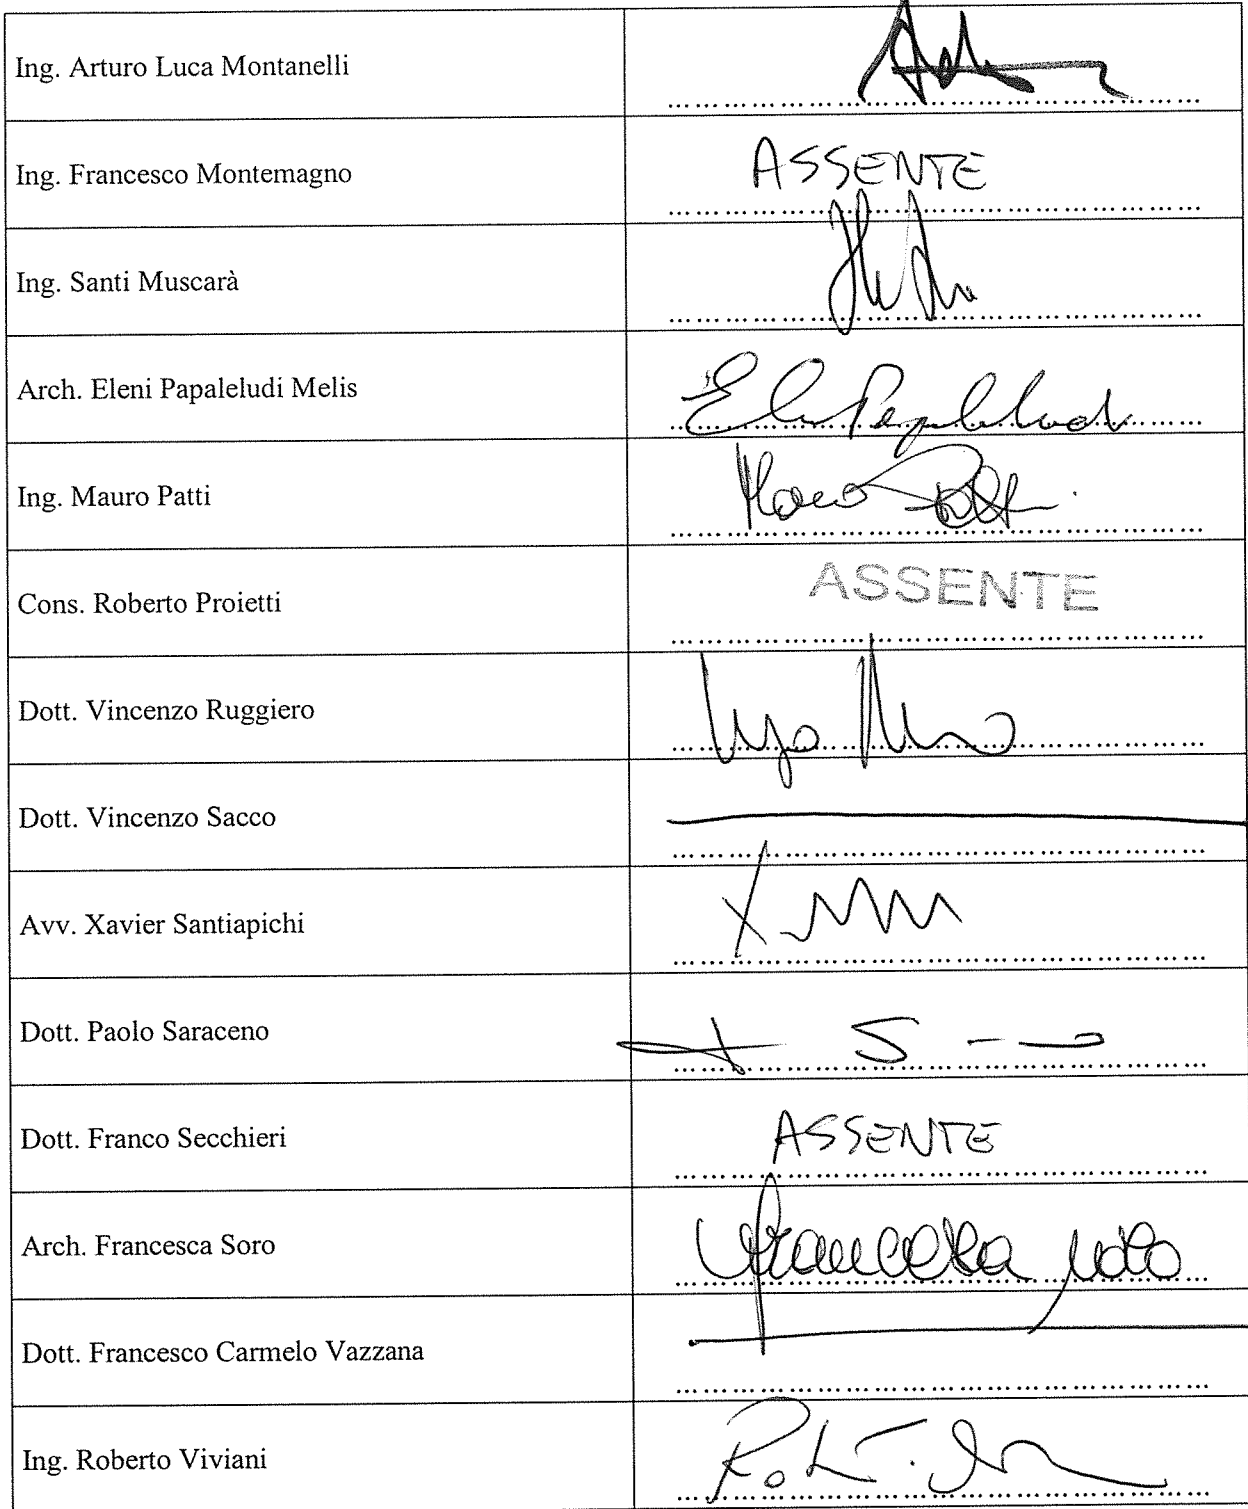 Ing. Arturo Luca Montanelli
Ing. Francesco Montemagno
ASSENTE
Ing. Santi Muscarà
Arch. Eleni Papaleludi Melis
Ing. Mauro Patti
Cons. Roberto Proietti
ASSENTE
Dott. Vincenzo Ruggiero
Dott. Vincenzo Sacco
Avv. Xavier Santiapichi
Dott. Paolo Saraceno
Dott. Franco Secchieri
ASSENTE
Arch. Francesca Soro
Francesca Soro
Dott. Francesco Carmelo Vazzana
Ing. Roberto Viviani